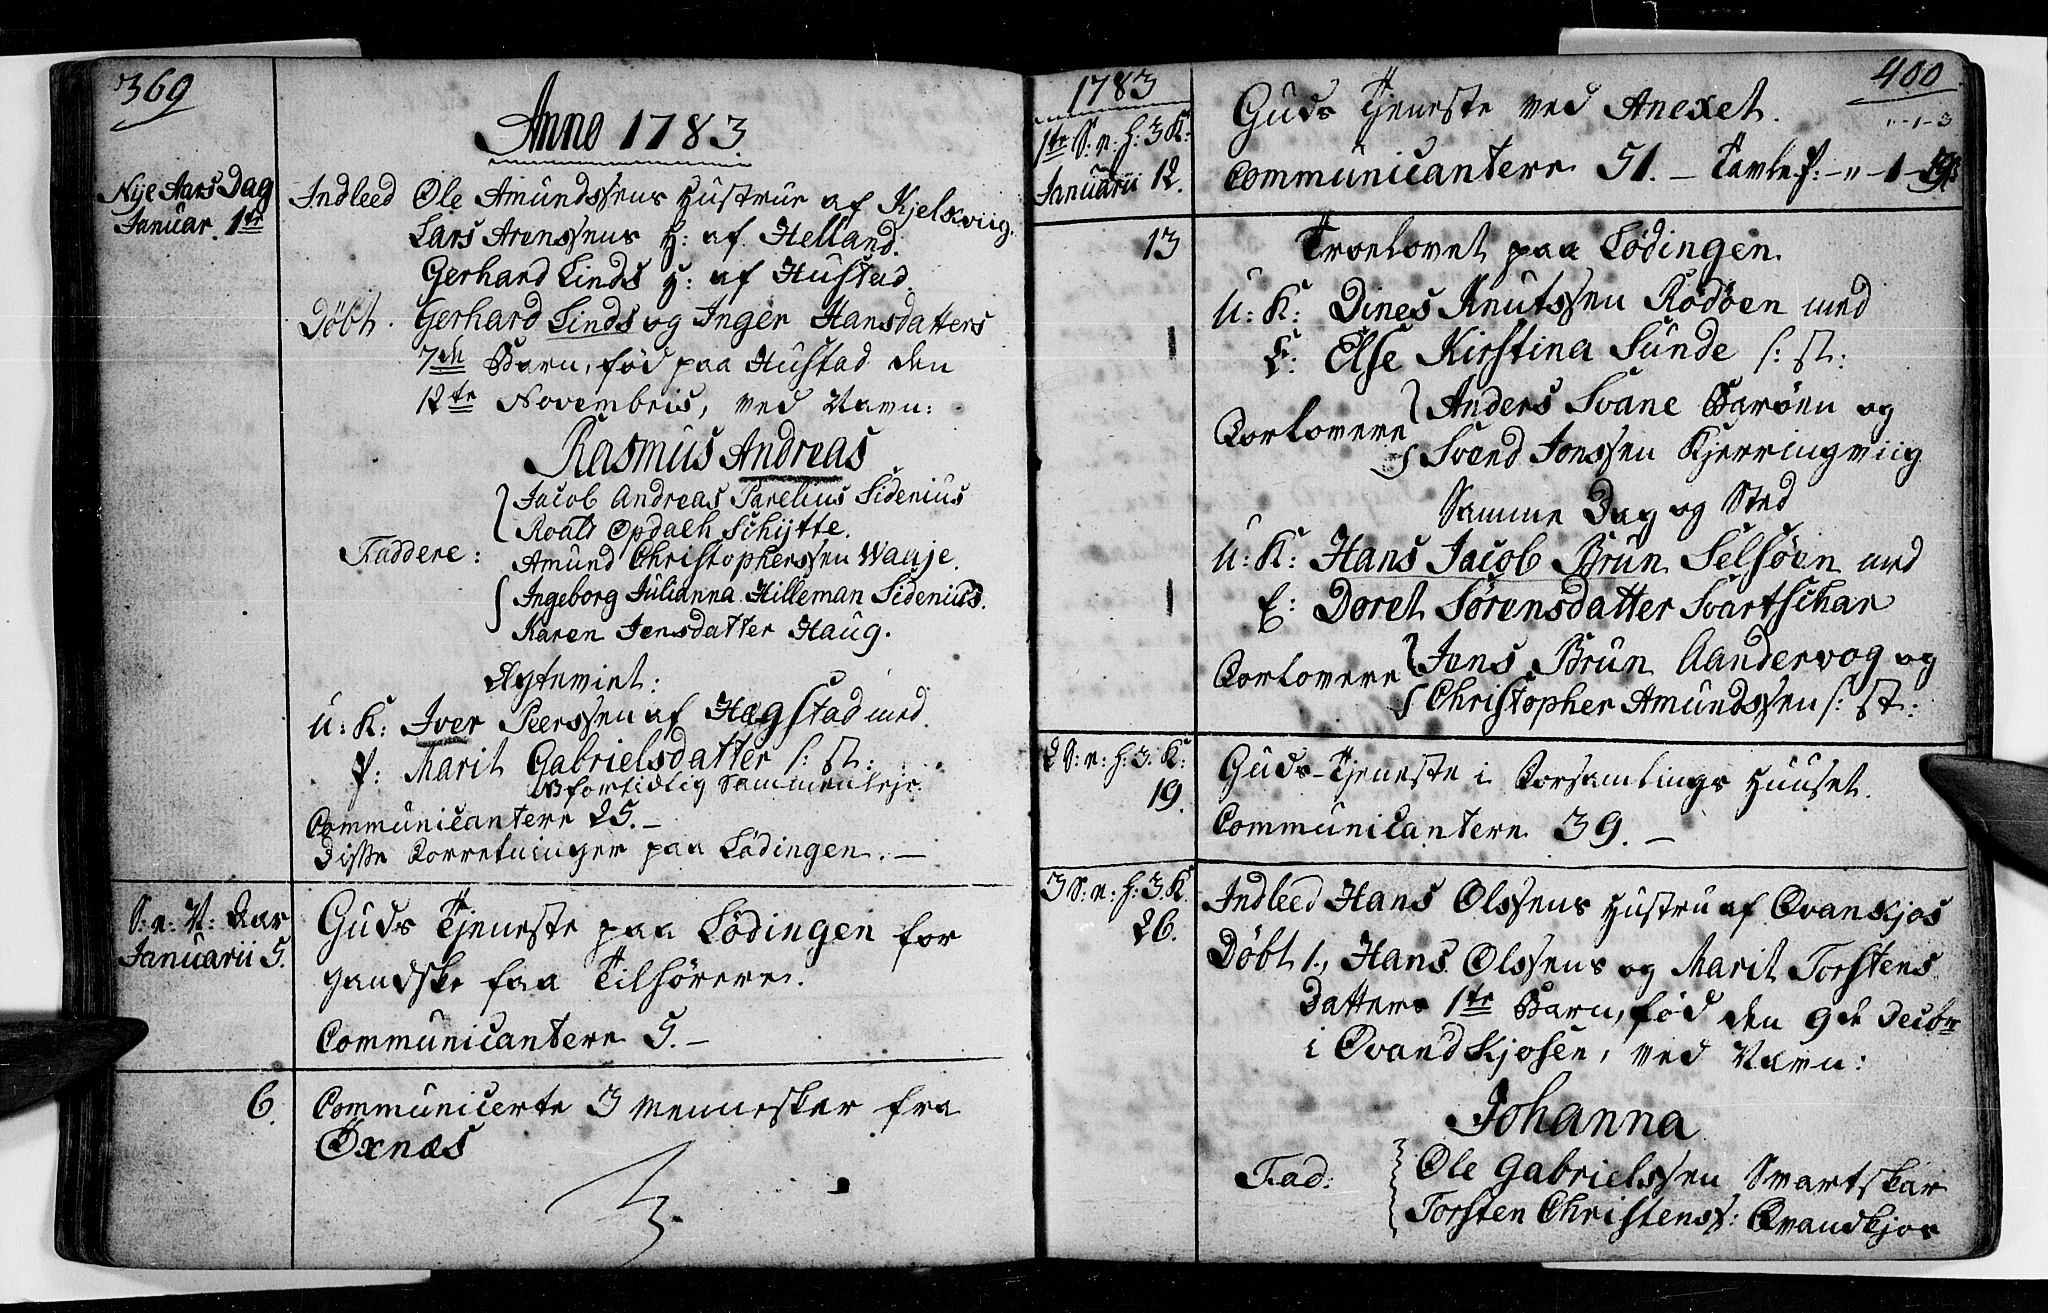 369
Anno 1783
Nÿe Aars Dag
Januar. 1te
Indleed Ole Amundssens Hustrue af Kjelsviig.
Lars Arenssens H: af Helland.
Gerhard Linds H: af Hustad.
Döbt. Gerhard Linds og Inger Hansdatters
7de Barn, fød paa Hustad den
12te Novembris, ved Navn:
Rasmus Andreas
Jacob Andreas Parelius Sidenius
Roald Opdaell Schÿtte.
Faddere: Amund Christopherssen Waage.
Ingeborg Julianna Hilleman Sidenius.
Karen Jensdatter Haug.
Ægteviet:
U: K: Iver Peerssen af Hægstad med
P: Marit Gabrielsdatter s: st:
 forfidlig Sammenleje.
Communicantere 25. —
Disse Forretninger paa Lödingen. —
S: n: N: Aar
Januarii 5.
Guds Tjeneste paa Lödingen for
gandske faa Tilhörere.
Communicantere 5. —
6.
Communicerte 3 Mennesker fra
Öxnæs
1783
400
1te S: n: h: 3 K:
Januarii 12.
Guds Tjeneste ved Anexet.
" - 1 - 3
Communicantere 51. — Tavle P: - " - 1 -
13
Troelovet paa Lödingen.
U: K: Dines Knutssen Rodöen med
E: Else Kirstina Sunde s: st:
Forlovere Anders Svane Barøen og
Svend Jonssen Kjerringviig
Samme Dag og Sted
U: K: Hans Jacob Brun Selsöen med
E: Doret Sörensdatter Svartschar
Forlovere Jens Brun Aandervog og
Christopher Amundssen s: st:
2 S: n: h: 3. K:
19.
Guds-Tjeneste i Forsamlings Huuset.
Communicantere 39. —
3 S: n: h: 3. K
26.
Indleed Hans Olssens Hustru af Qvanskjos
Döbt 1., Hans Olssens og Marit Torstens
Datters 1te Barn, fød den 9de Decbr
i Qvandkjosen, ved Navn:
Johanna
Fad: Ole Gabrielssen Svartskar
Torsten Christenss: Qvandkjos